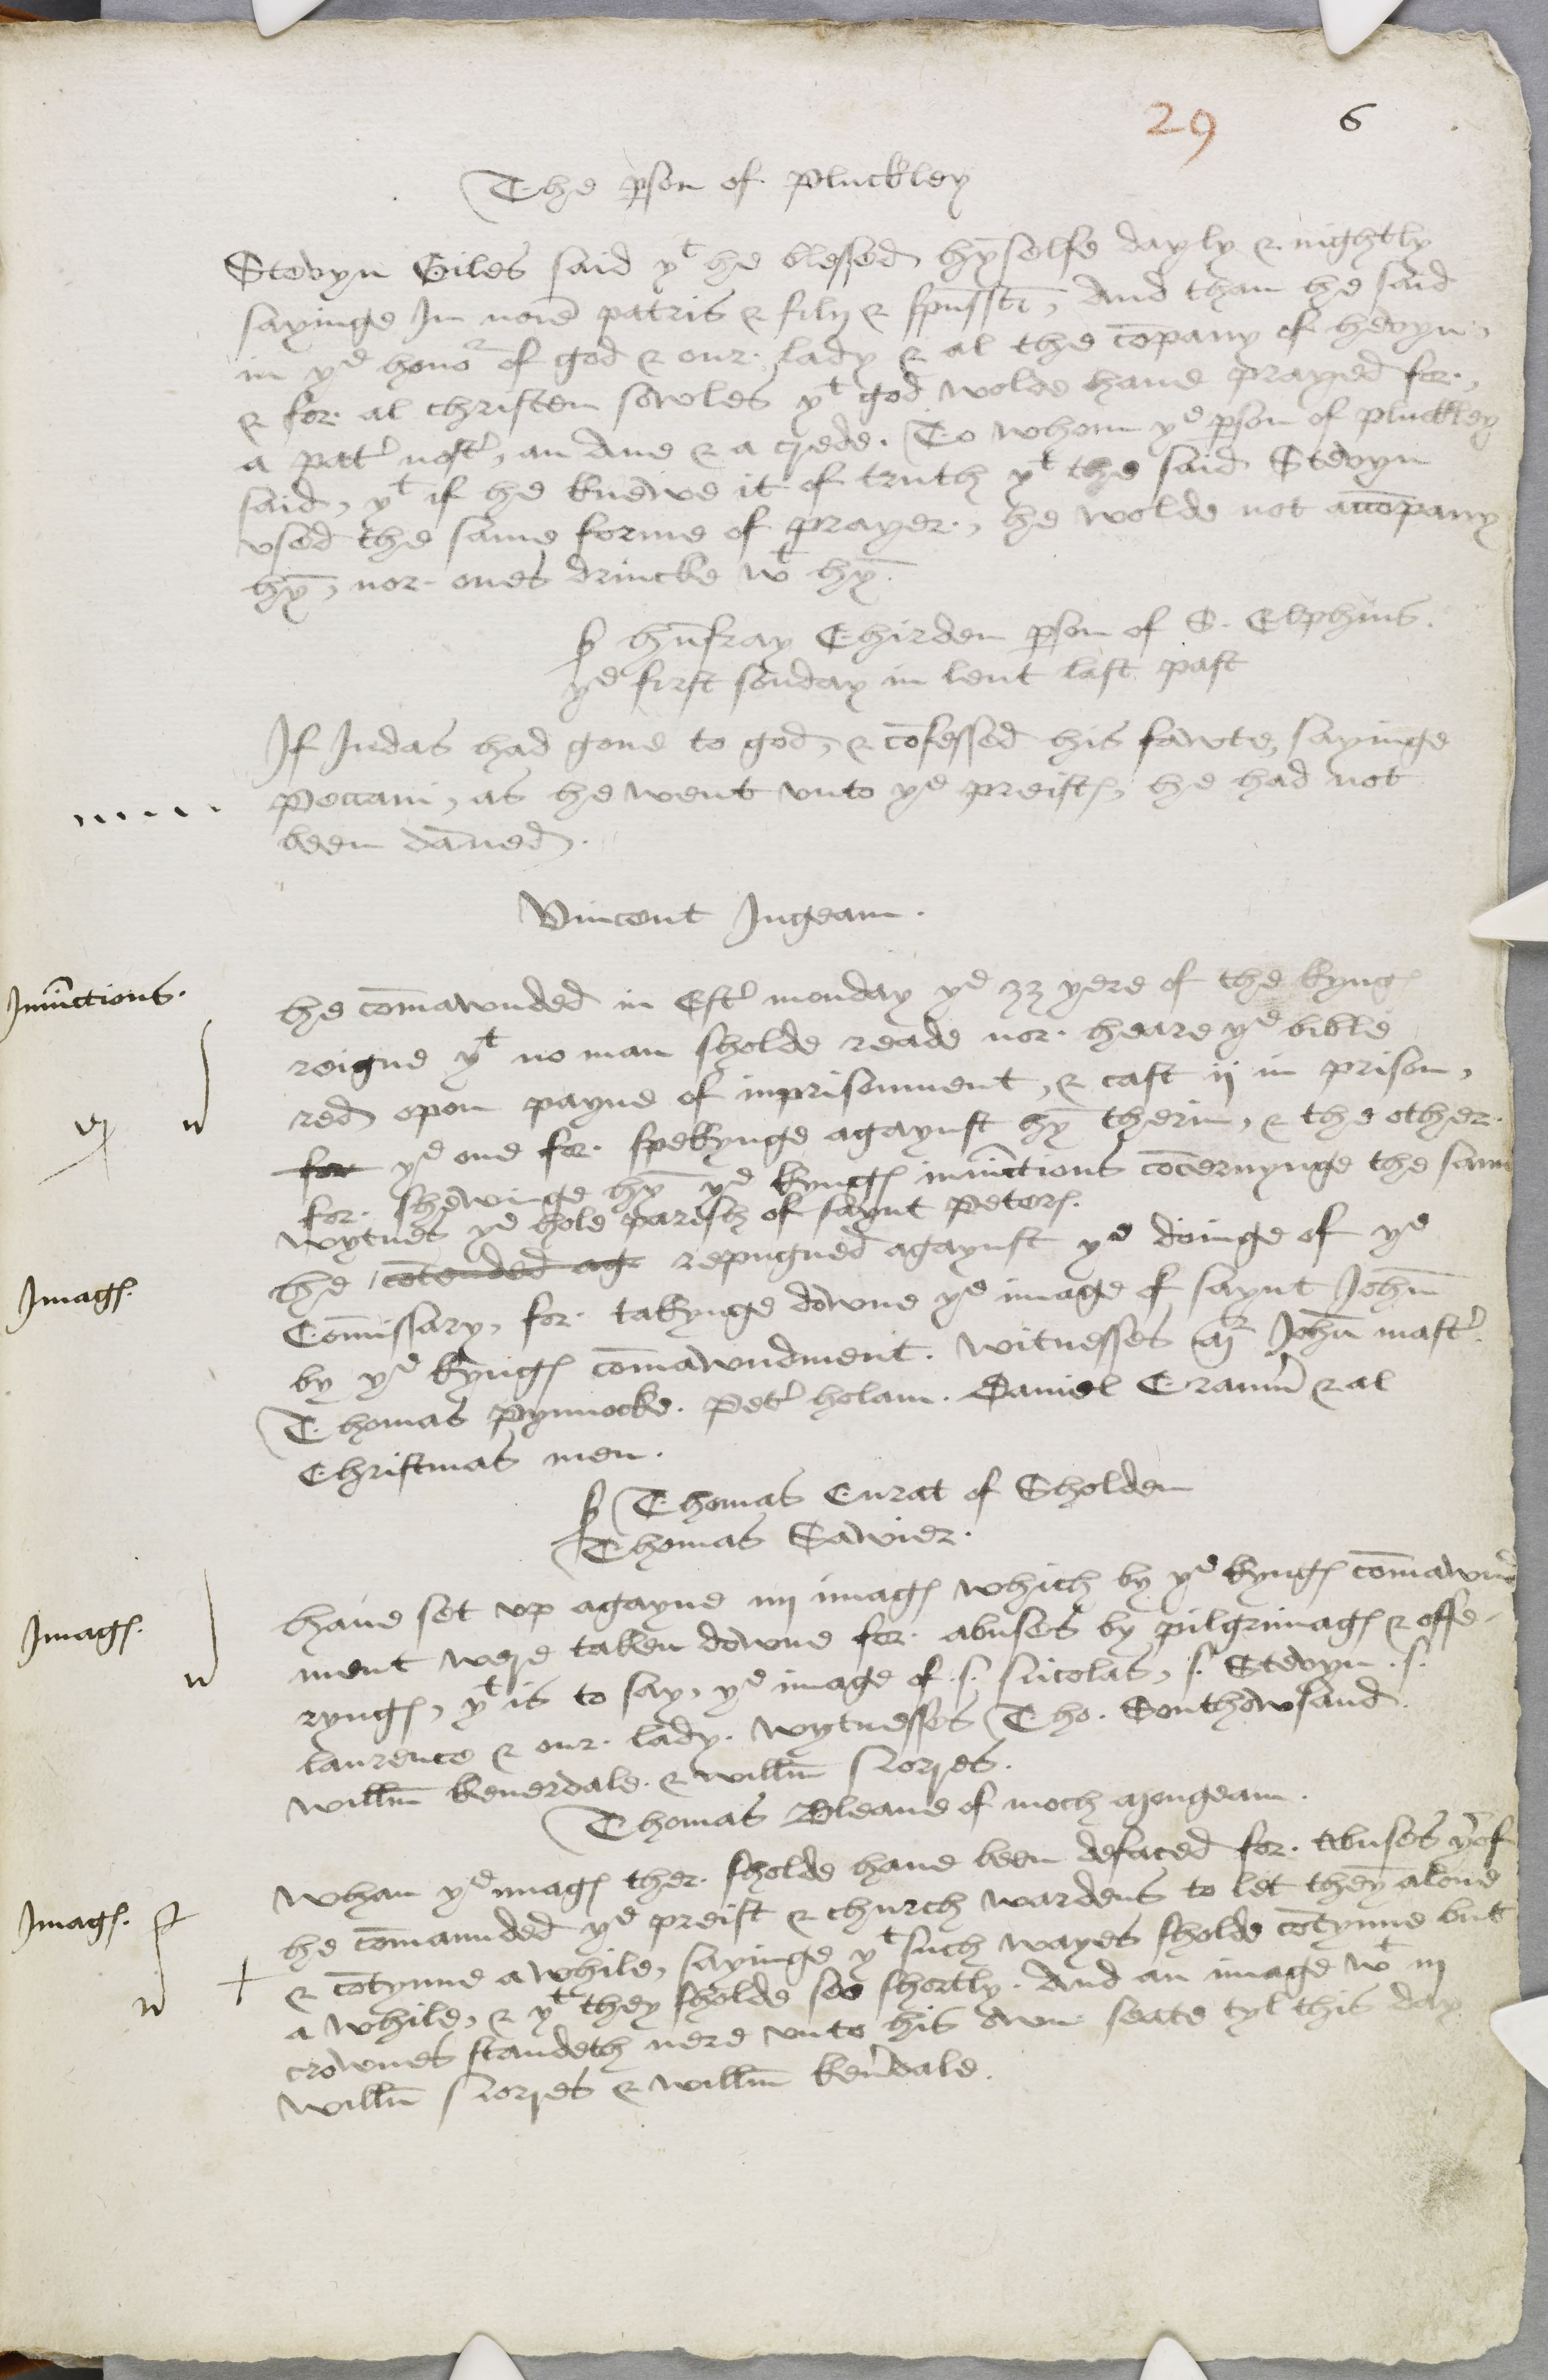 29 6
The pson of Pluckley
Stevyn Giles said yt he blessed hȳselfe dayly & nightly
sayinge In noīe patris & filij & spūs scī, And than he said
in ye honor of god & our lady & al the cōpany of hevyn,
& for al christen sowles yt god wolde have prayed for,
a pater noster, an Ave & a crede. To whom ye pson of pluckley
said, yt if he knewe it of truth yt the said Stevyn
used the same forme of prayer, he wolde not accōpany
hȳ, nor ones drincke wt hȳ.
humfray Chirden pson of S. Elphius.
ye first sonday in lent last past
If Judas had gone to god, & cōfessed his fawte, sayinge
Peccavi, as he went unto ye preists, he had not
been dāned.
Vincent Ingeam.
Iniūctions.
he cōmawnded in Ester monday ye 33 yere of the kyngs
reigne yt no man sholde reade nor heare ye bible
red opon payne of inprisonment, & cast ij in prison,
for ye one for spekynge agaynst hȳ therin, & the other
for shewinge hȳ ye kyngs iniūctions cōcernynge the same
wytnes ye hole parish of saynt Peters.
Images.
he cōtended ag repugned agaynst ye doinge of ye
Cōmissary, for takynge downe ye image of saynt Johñ
by ye kyngs cōmawndment. witnesses Mr Johñ master
Thomas Pynnocke. Peter holam. Daniel Cranmer & al
Christmas men.
Thomas Curat of Sholden
Thomas Sawier.
Images.
have set up agayne iiij images which by ye kyngs cōmawnd
ment were taken downe for abuses by pilgrimages & offe-
ryngs, yt is to say, ye image of .s. Nicolas, s. Stevyn .s.
laurence & our lady. wytnesses Tho. Conthowsand.
willm̄ kenerdale. & willm̄ Norres.
Thomas Bleane of moch Mongeam.
Images.
whan ye images ther sholde have been defaced for abuses yrof
he cōmaunded ye preist & church wardens to let thēy alone
& cōtynue a while, sayinge yt such wayes sholde cōtynue but
a while, & yt they sholde see shortly. And an image wt iij
crownes standeth nere unto his own seate tyl this day
willm̄ Norres & willm̄ kenerdale.